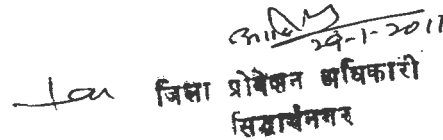 29-1-2011
जिला प्रोबेशन अधिकारी
सिद्धार्थनगर